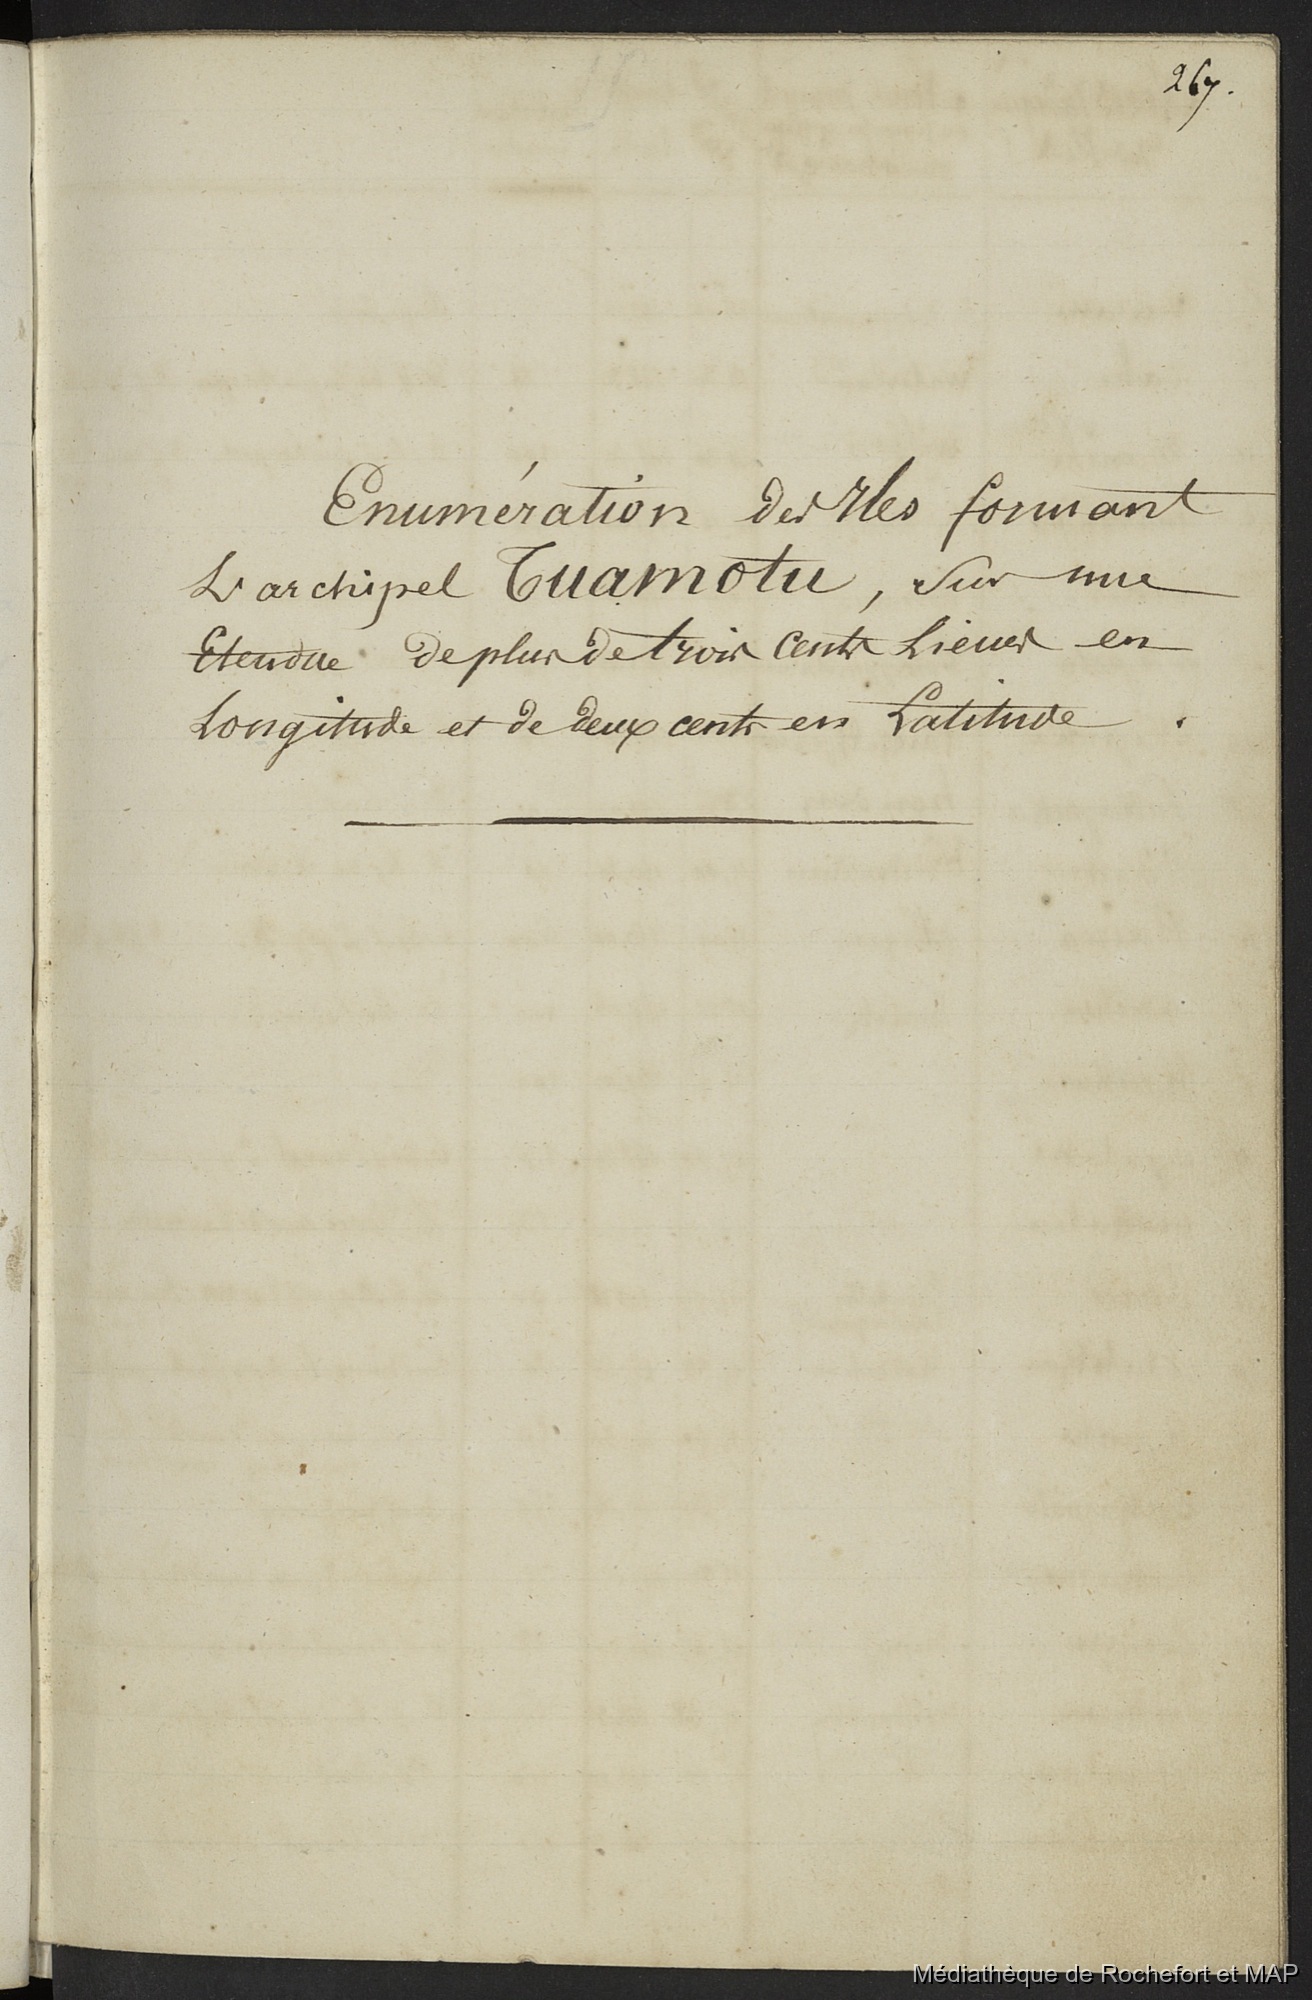 267.
Enumération des Iles formant
L'archipel Tuamotu, sur une
Etendue de plus de trois cents Lieues en
Longitude et de deux cents en Latitude.
Médiathèque de Rochefort et MAP